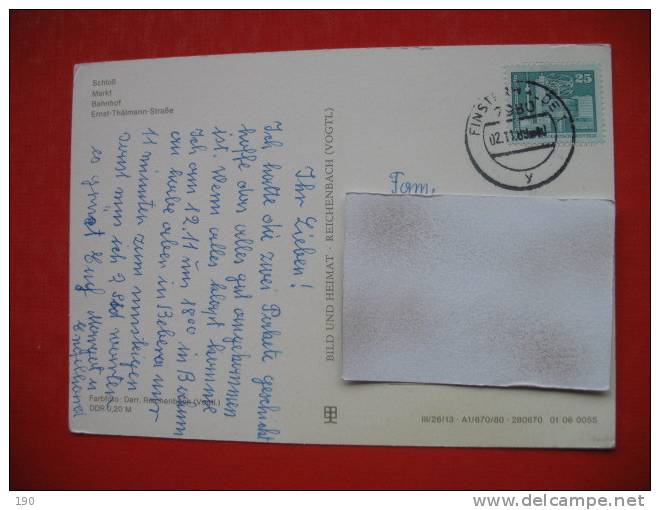 Schloß
Markt
Bahnhof
Ernst-Thälmann-Straße
Ihr Lieben!
Ich hatte die zwei Pakete geschickt
hoffe das alles gut angekommen
ist. Wenn alles klapt komme
Ich am 12.11 um 1800 in
an habe aber in Bebra nur
11 minuten zum umsteigen
sonst muß ich 2 Std warten
es grüßt Euch Margot u
Farbfoto: Darr, Reichenbach (Vogtl.)
DDR 0,20 M
BILD UND HEIMAT · REICHENBACH (VOGTL)
25
02.11.8
y
Fam.
III/26/13 · A1/670/80 · 280670 01 06 0055
190
delcampe.net